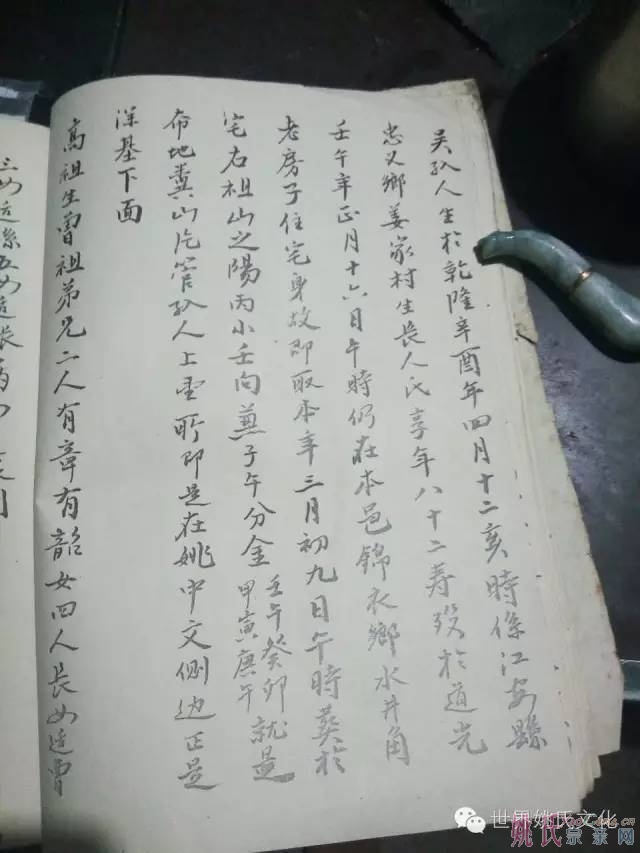 吴孺人生於乾隆辛酉年四月十二亥時係江安縣
忠义鄉姜家村生長人氏享年八十二寿殁於道光
壬午年正月十六日午時仍在本邑錦衣鄉水井角
老房子住宅身故即取本年三月初九日午時葵於
宅右祖山之陽丙小壬向兼子午分金壬午癸卯就是
甲寅庚午
布地糞山汔管孺人上堂所即是在姚中文側边正是
深基下面
高祖生曾祖弟兄二人有章有韶女四人長女适曹
三女适 五女适張
世界姚氏文化
姚氏宗亲网